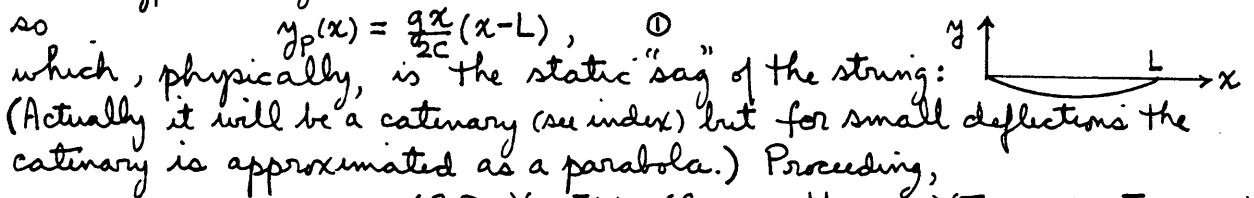 so y_p(x) = gx/2C (x-L) , ①
which, physically, is the static "sag" of the string: y L x
(Actually it will be a catenary (see index) but for small deflections the
catenary is approximated as a parabola.) Proceeding,